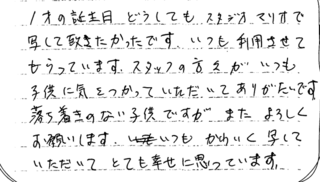 1才の誕生日 どうしても スタジオマリオで
写して頂きたかったです。いつも利用させて
もらっています。スタッフの方々が いつも
子供に気をつかっていただいてありがたいです
落ち着きのない子供ですが また よろしく
お願いします。いつも かわいく 写して
いただいて とても幸せに思っています。